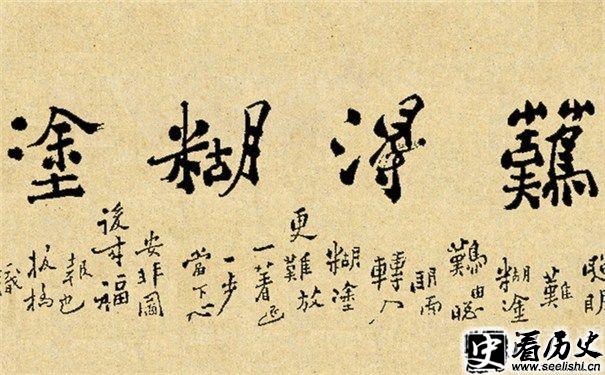 難得糊塗
聰明
難
糊塗
難由聰
明而
轉入
糊塗
更難放
一著退
一步
當下心
安非圖
後來福
報也
板橋
識
史 看历史
www.seelishi.cn